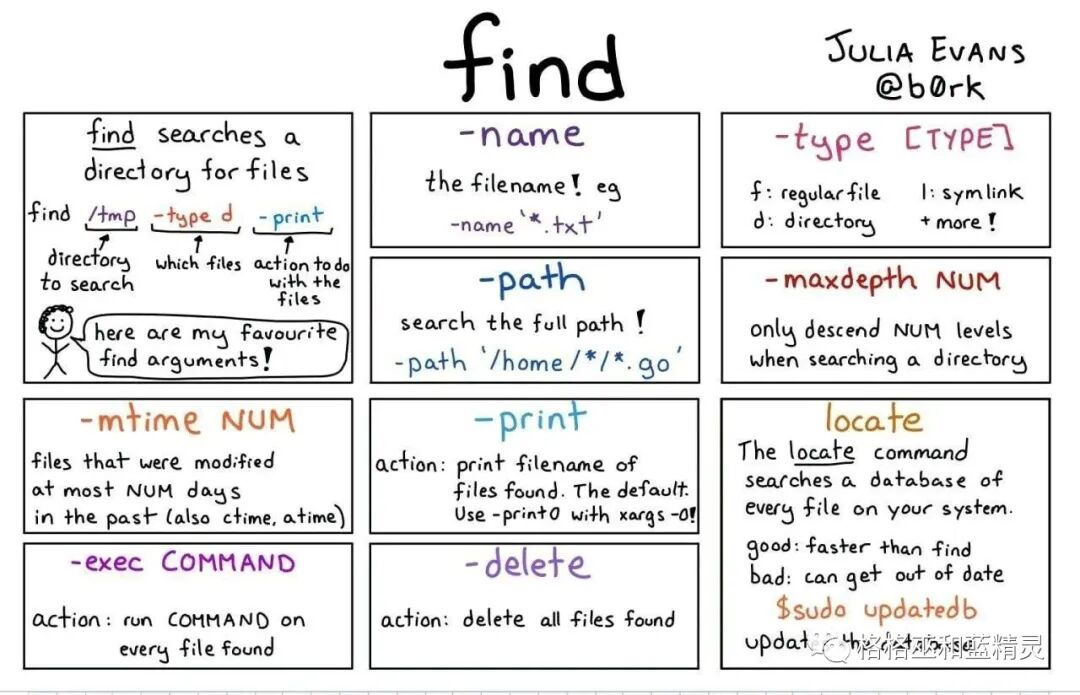 find
JULIA EVANS
@b0rk
find searches a
directory for files
find /tmp -type d -print
directory
to search
which files
action to do
with the
files
here are my favourite
find arguments!
-name
the filename! eg
-name '*.txt'
-type [TYPE]
f: regular file
l: symlink
d: directory
+ more!
-path
search the full path!
-path '/home/*/*.go'
-maxdepth NUM
only descend NUM levels
when searching a directory
-mtime NUM
files that were modified
at most NUM days
in the past (also ctime, atime)
-print
action: print filename of
files found. The default.
Use -print0 with xargs -0!
locate
The locate command
searches a database of
every file on your system.
good: faster than find
bad: can get out of date
$sudo updatedb
updates the database
格格巫和蓝精灵
-exec COMMAND
action: run COMMAND on
every file found
-delete
action: delete all files found